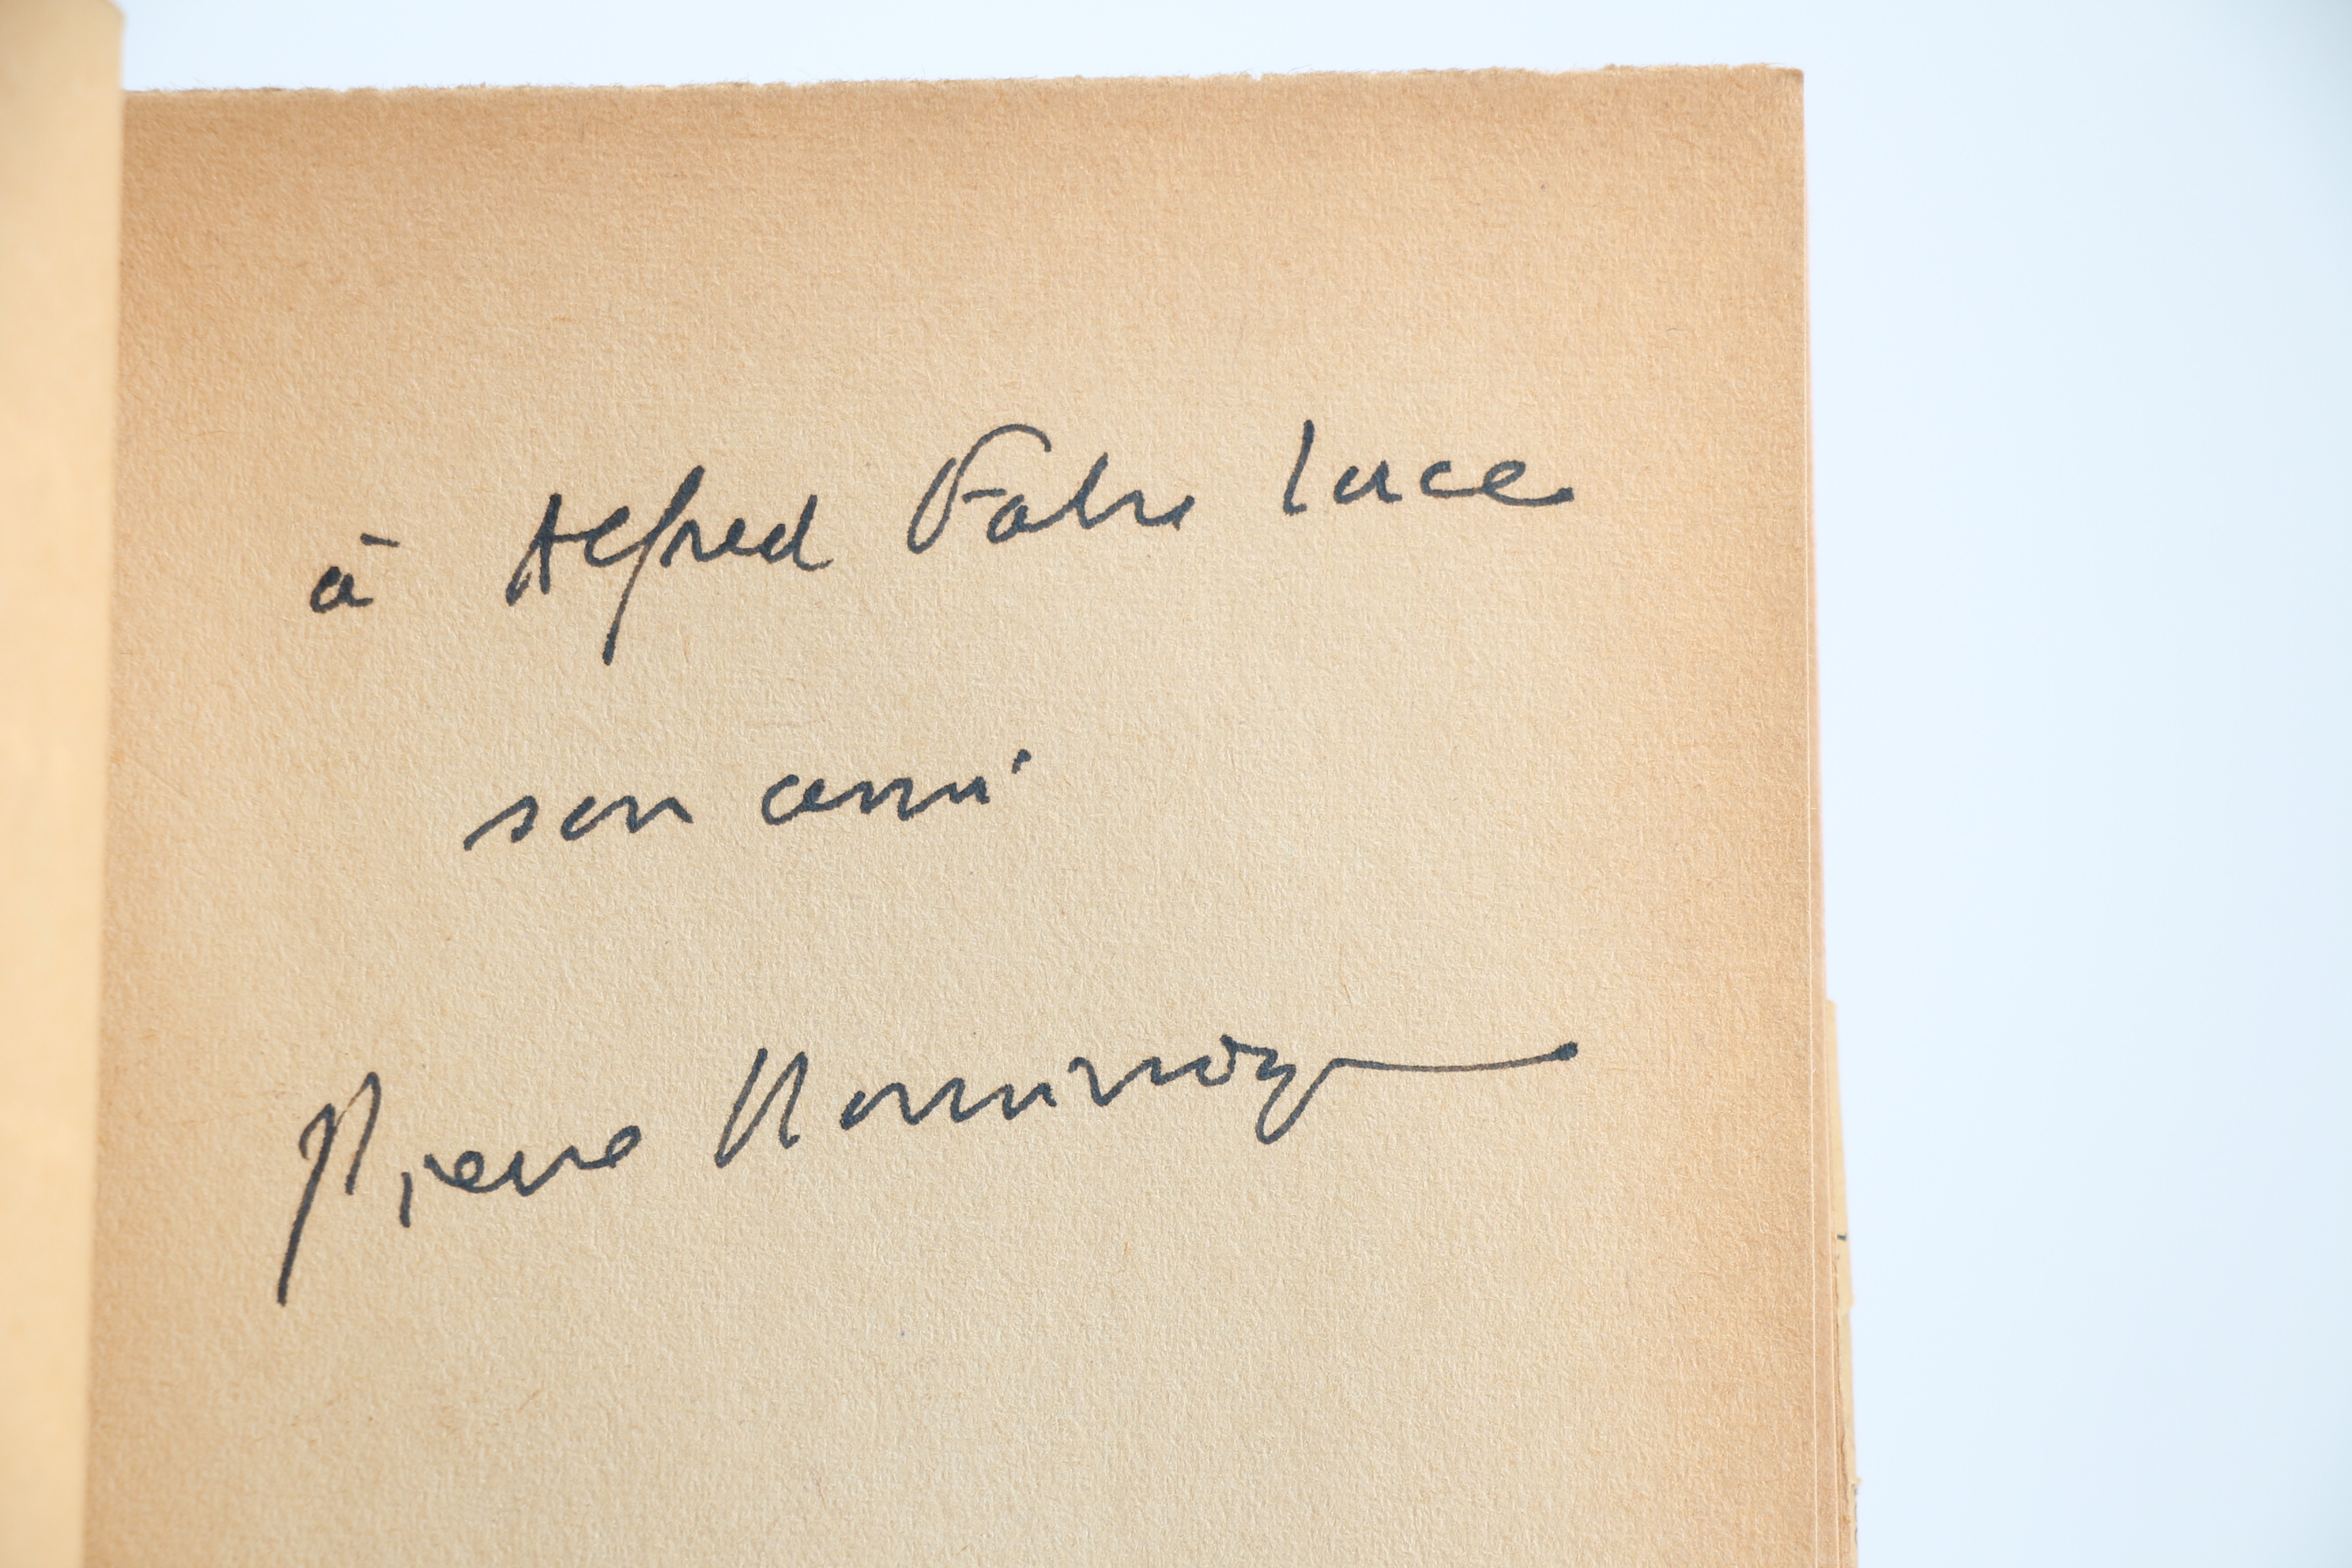 à Alfred Fabre Luce
son ami
Pierre Dominique